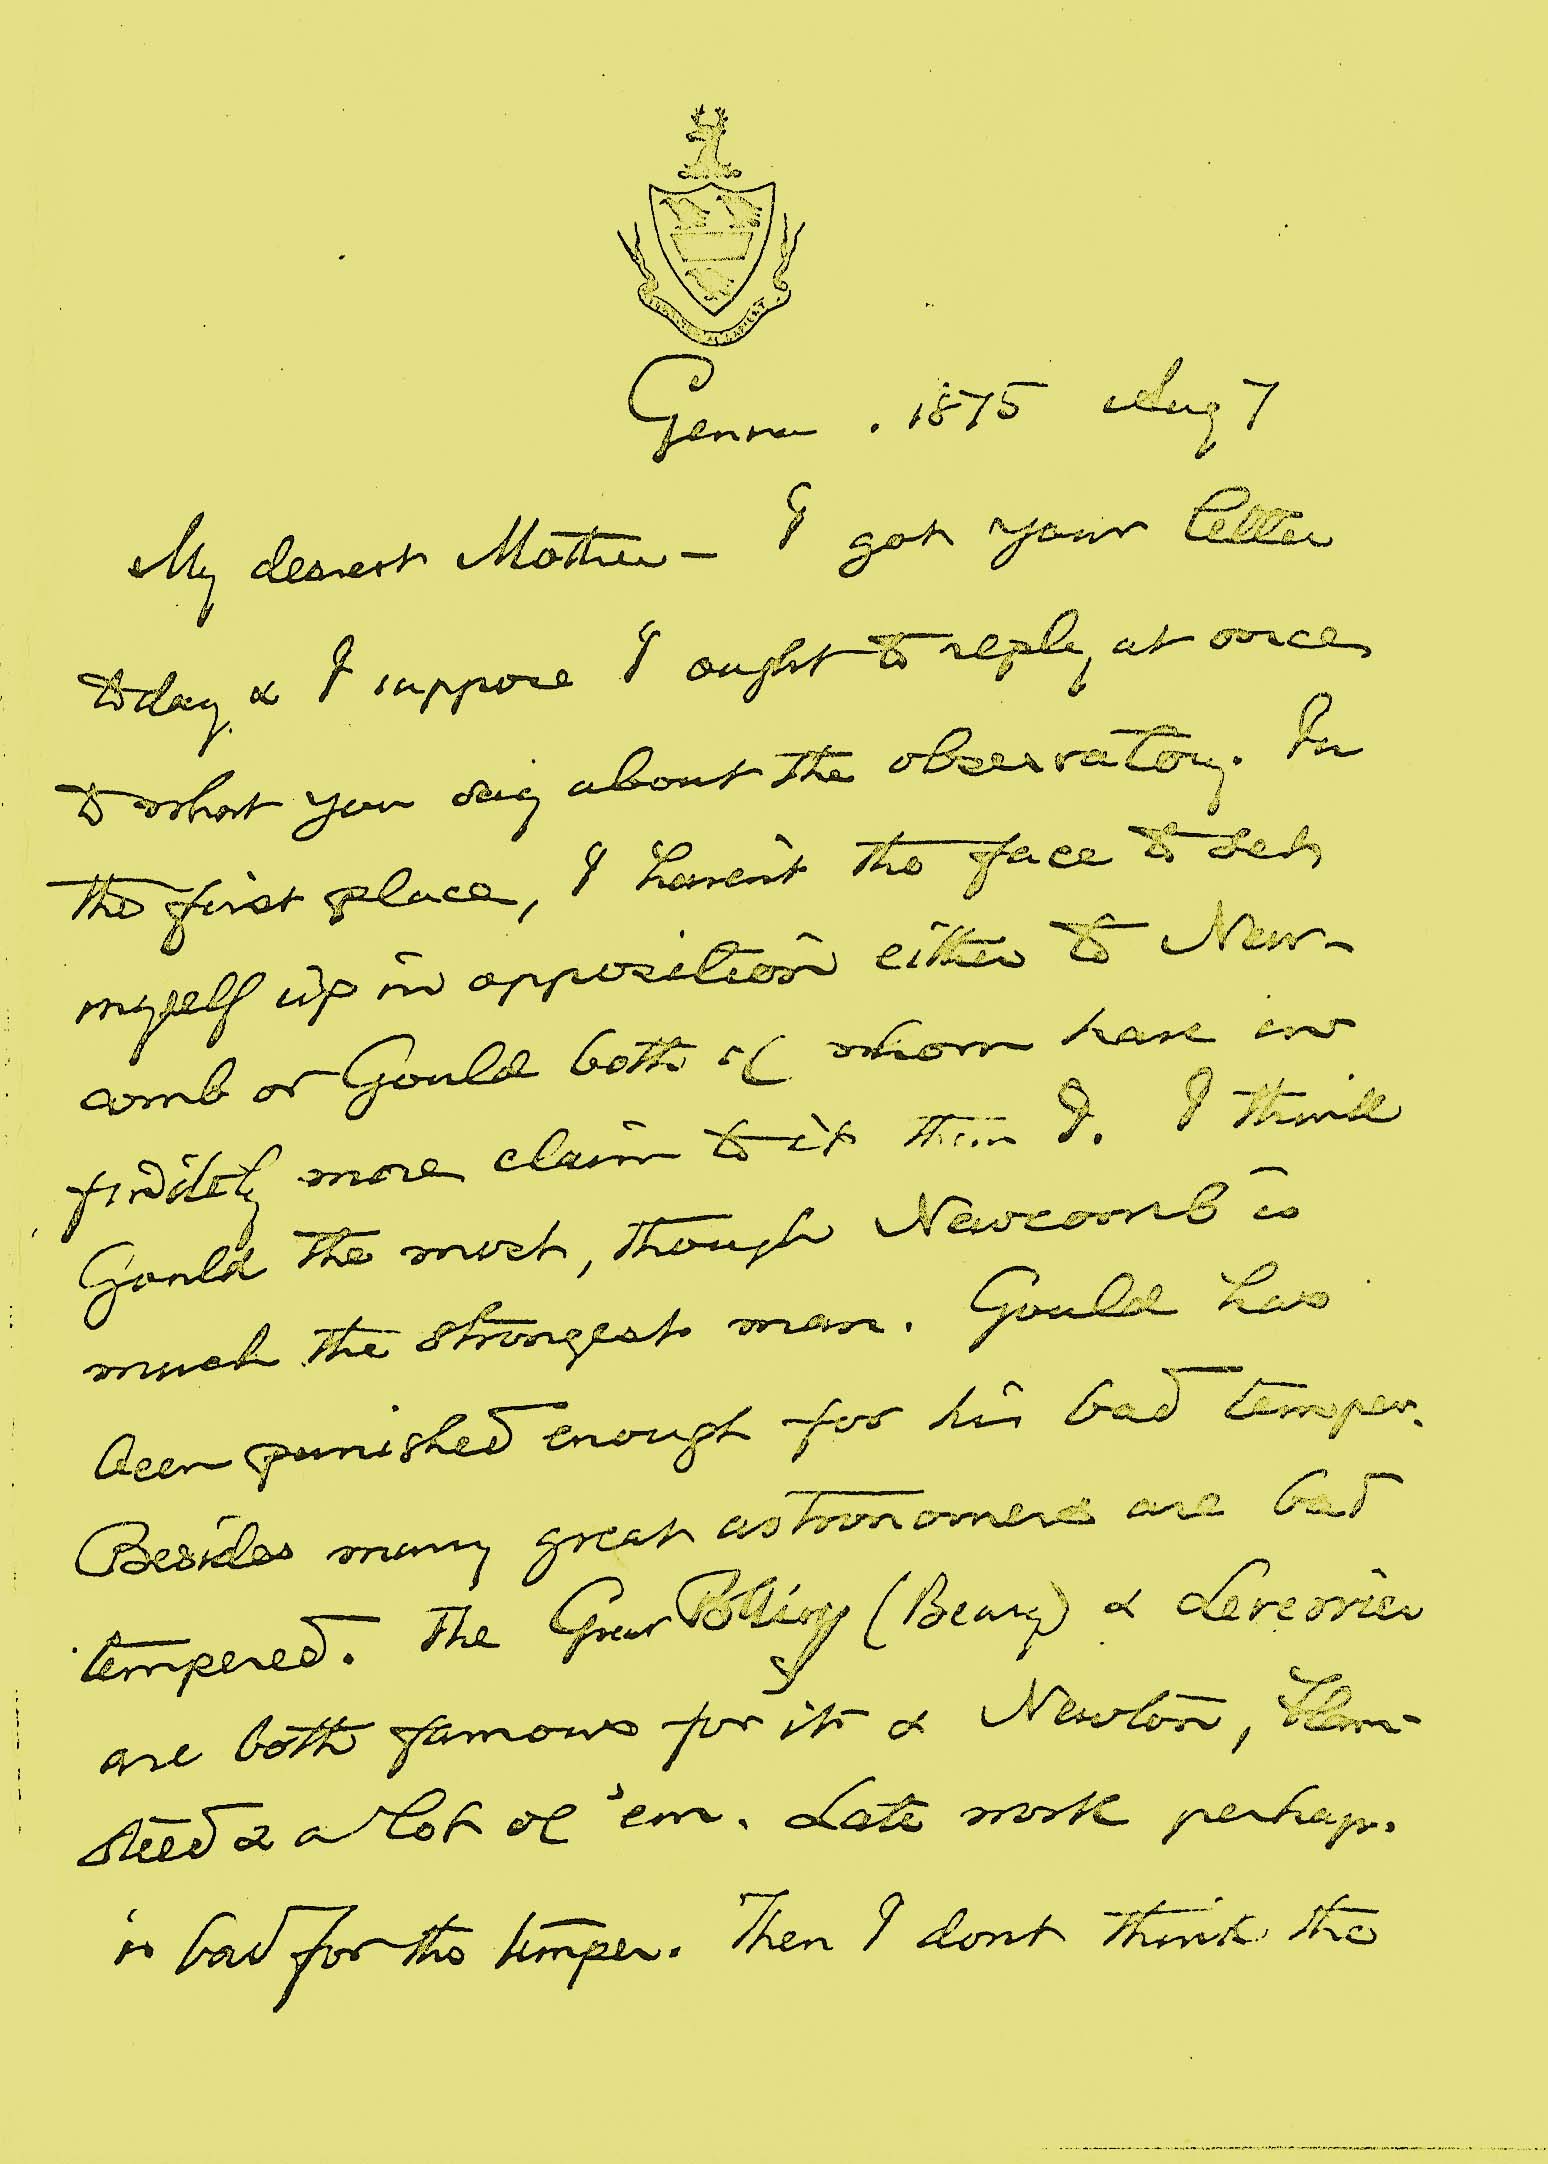 Genoa. 1875 Aug 7
My dearest Mother – I got your letter
today & I suppose I ought to reply at once
to what you say about the observatory. In
the first place, I haven't the face to set
myself up in opposition either to New-
comb or Gould both of whom have in
finitely more claim to it than I. I think
Gould the most, though Newcomb is
much the strongest man. Gould has
been punished enough for his bad temper.
Besides many great astronomers are bad
tempered. The Great (Beary) & Leverrier
are both famous for it & Newton, Flam-
steed & a lot of 'em. Late work perhaps.
is bad for the temper. Then I dont think the